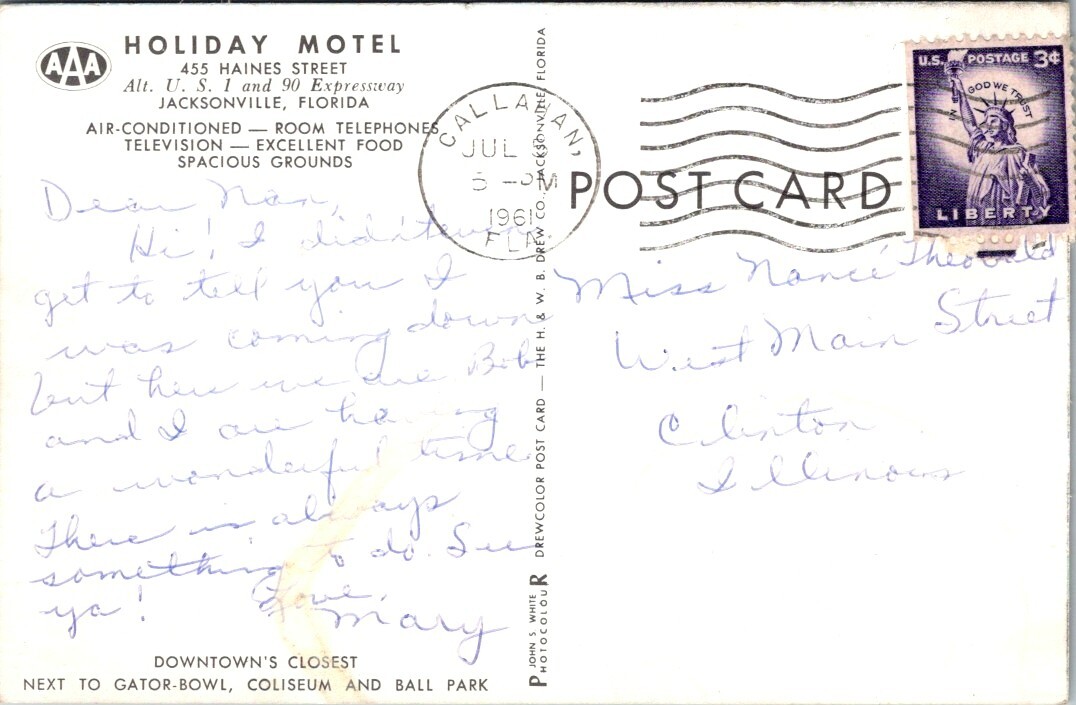 AAA
HOLIDAY MOTEL
455 HAINES STREET
Alt. U. S. 1 and 90 Expressway
JACKSONVILLE, FLORIDA
AIR-CONDITIONED — ROOM TELEPHONES
TELEVISION — EXCELLENT FOOD
SPACIOUS GROUNDS
Dear Nan,
Hi! I didn't even
get to tell you I
was coming down
but here we are. Bob
and I are having
a wonderful time.
There is always
something to do. See
ya! Love,
Mary
DOWNTOWN'S CLOSEST
NEXT TO GATOR-BOWL, COLISEUM AND BALL PARK
JOHN S. WHITE
PHOTOCOLOUR
DREWCOLOR POST CARD — THE H. & W. B. DREW CO., JACKSONVILLE, FLORIDA
CALLAHAN,
JUL
5 – PM
1961
FLA.
POST CARD
U.S. POSTAGE 3¢
IN GOD WE TRUST
LIBERTY
Miss Nance Theobald
West Main Street
Clinton
Illinois